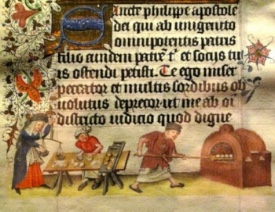 Sancte philippe apostole
dei qui ab unigenito
omnipotentis patris
filio eundem patrē t' et socijs tu
is ostendi petisti. Te ego miser
peccator et multis sordibus ob
uolutus deprecor ut me ab oi
districto iudicio quod digne